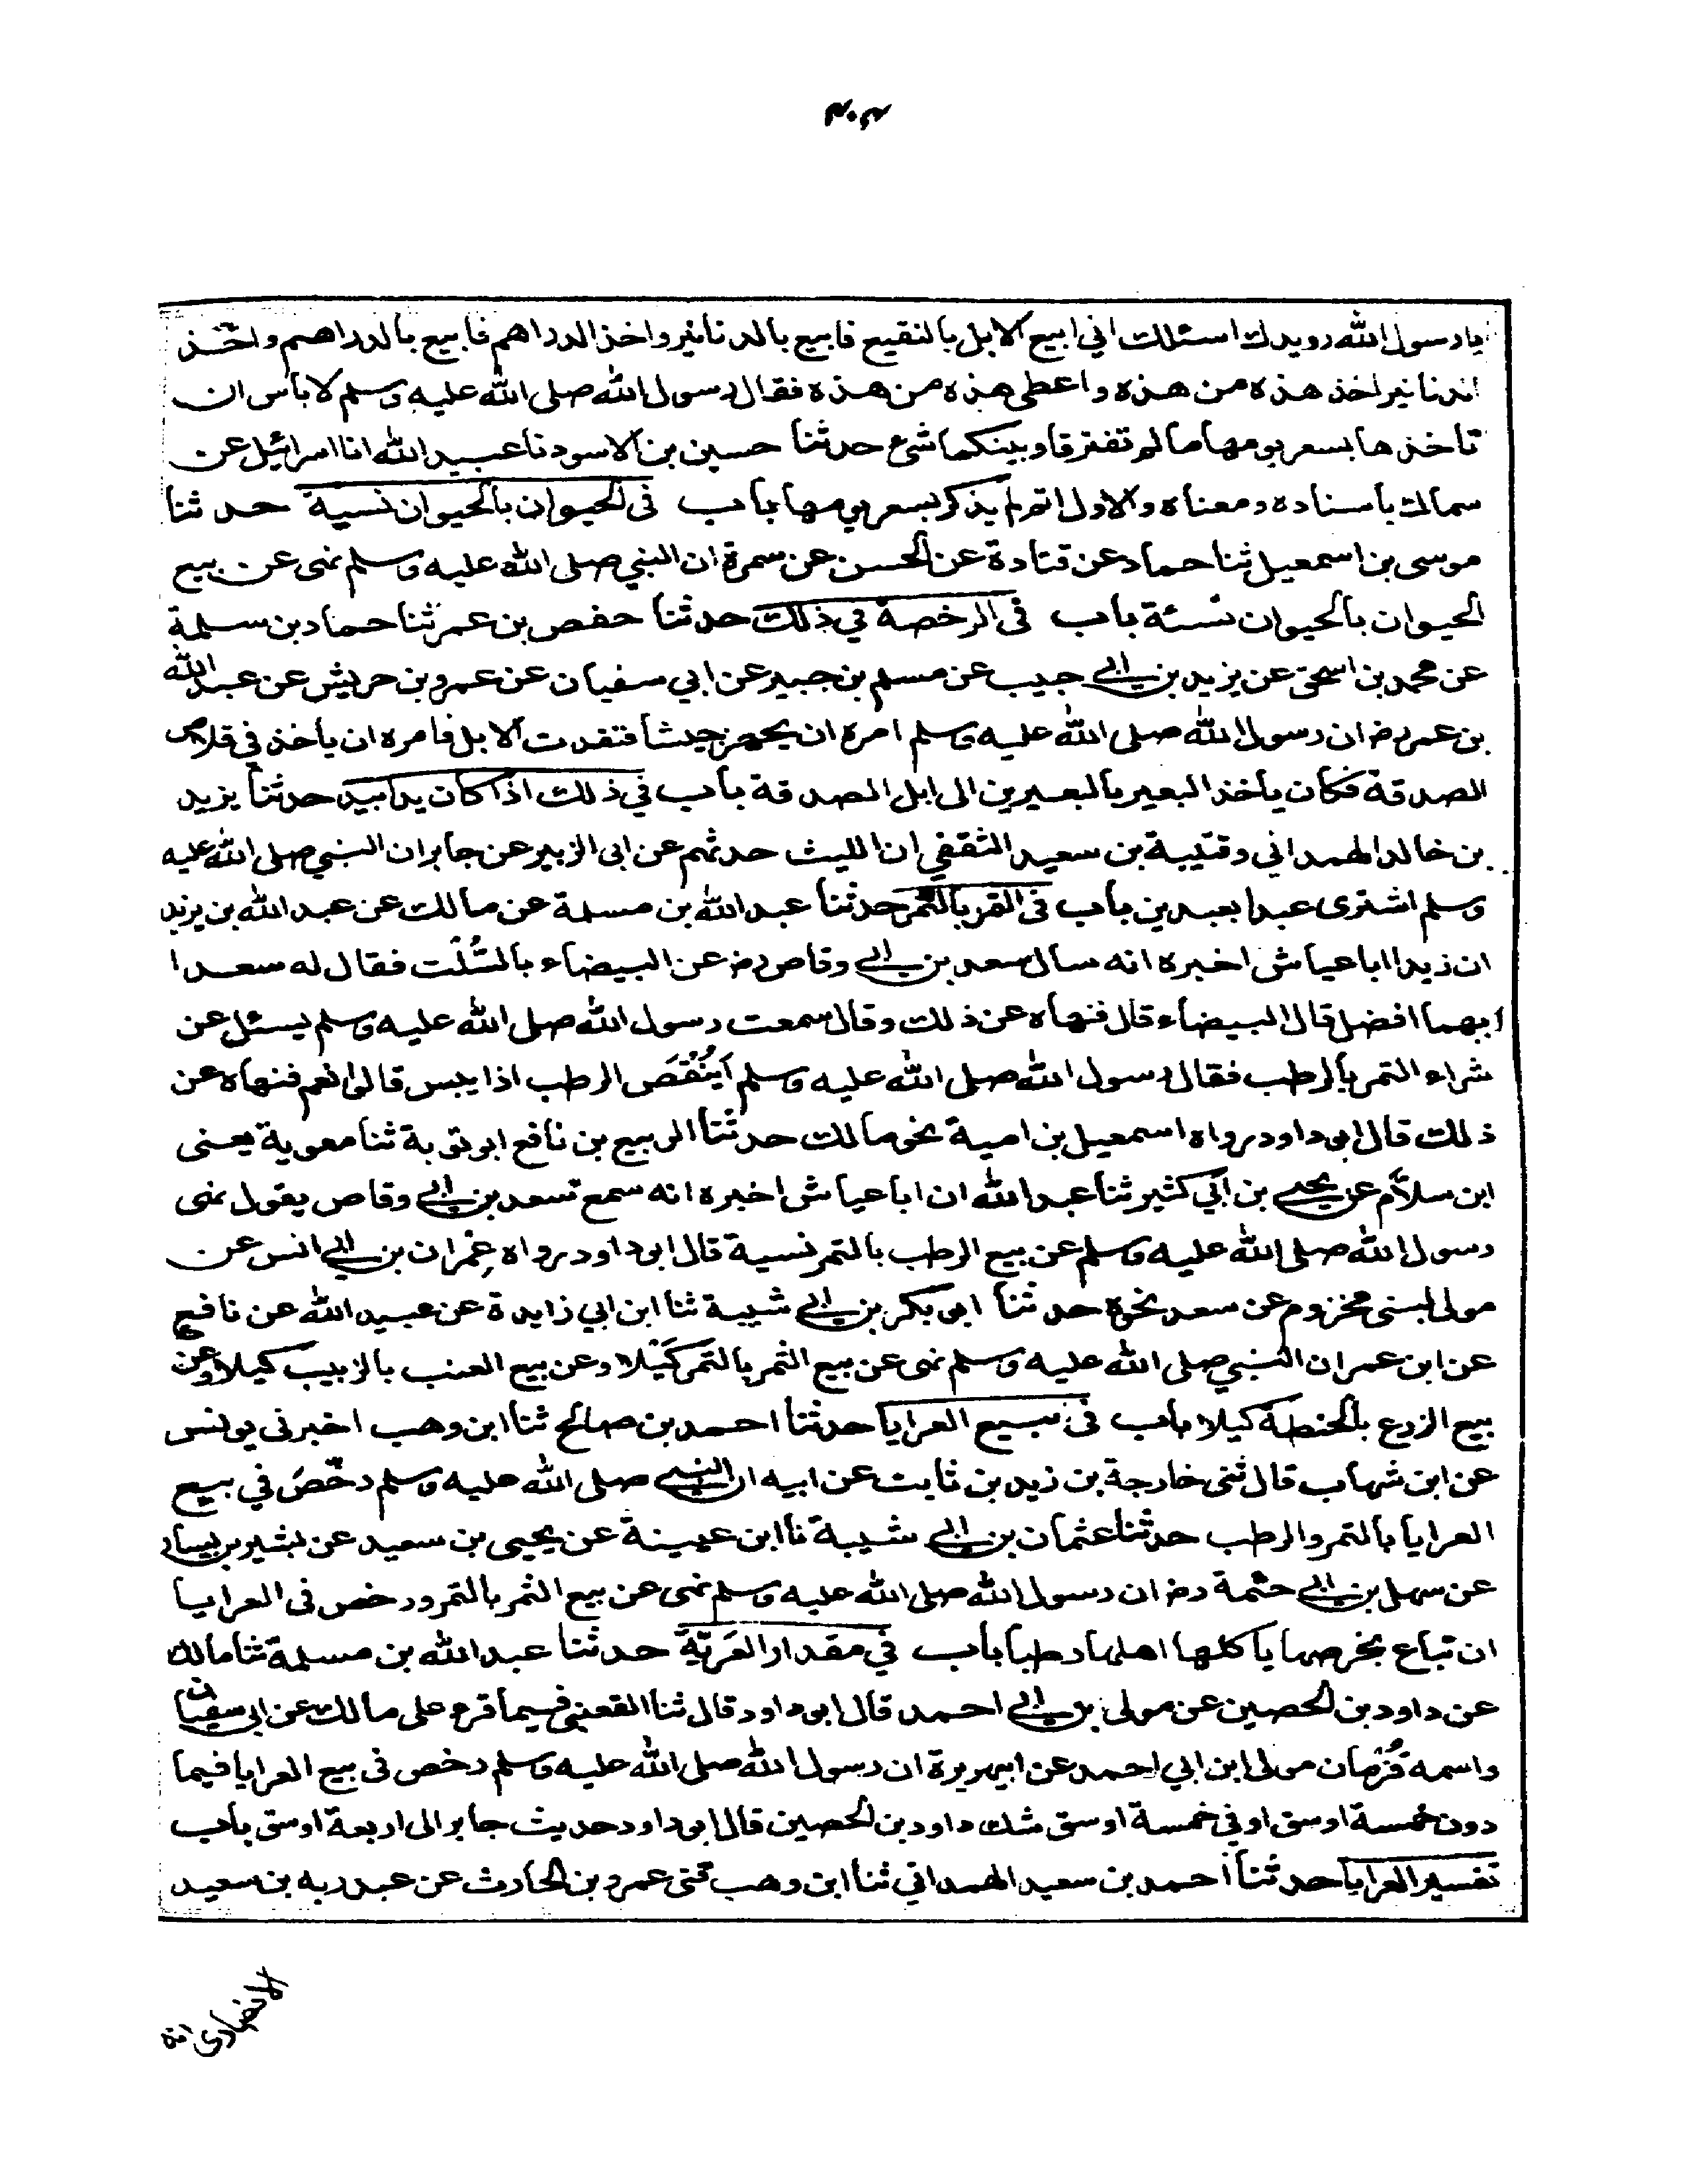 يا رسول الله رويدك اسئلك اني ابيع الابل بالنقيع فابيع بالدنانير واخذ الدراهم فابيع بالدراهم واخذ
الدنانير اخذ هذه من هذه واعطي هذه من هذه فقال رسول الله صلى الله عليه وسلم لا بأس ان
تأخذها بسعر يومها ما لم تفترقا وبينكما شئ حدثنا حسين بن الاسود نا عبيد الله انا اسرائيل عن
سماك بأسناده ومعناه والاول اتم لم يذكر بسعر يومها باب في الحيوان بالحيوان نسية حدثنا
موسى بن اسمعيل ثنا حماد عن قتادة عن الحسن عن سمرة ان النبي صلى الله عليه وسلم نهى عن بيع
الحيوان بالحيوان نسئة باب في الرخصة في ذلك حدثنا حفص بن عمر ثنا حماد بن سلمة
عن محمد بن اسحق عن يزيد بن ابي حبيب عن مسلم بن جبير عن ابي سفيان عن عمرو بن حريش عن عبد الله
بن عمر رض ان رسول الله صلى الله عليه وسلم امره ان يجهز جيشا فنفدت الابل فامره ان يأخذ في قلاص
الصدقة فكان يأخذ البعير بالبعيرين الى ابل الصدقة باب في ذلك اذا كان يدا بيد حدثنا يزيد
بن خالد الهمداني وقتيبة بن سعيد الثقفي ان الليث حدثهم عن ابى الزبير عن جابر ان النبي صلى الله عليه
وسلم اشترى عبدا بعبدين باب في التمر بالتمر حدثنا عبد الله بن مسلمة عن مالك عن عبد الله بن يزيد
ان زيدا ابا عياش اخبره انه سأل سعد بن ابي وقاص رض عن البيضاء بالسُّلْت فقال له سعد ا
ايهما افضل قال البيضاء قال فنهاه عن ذلك وقال سمعت رسول الله صلى الله عليه وسلم يسئل عن
شراء التمر بالرطب فقال رسول الله صلى الله عليه وسلم أيَنْقُصَ الرطب اذا يبس قالوا نعم فنهاه عن
ذلك قال ابو داود رواه اسمعيل بن امية نحو مالك حدثنا الربيع بن نافع ابو توبة ثنا معوية يعنى
ابن سلَّام عن يحيى بن ابي كثير ثنا عبد الله ان ابا عياش اخبره انه سمع سعد بن ابي وقاص يقول نهى
رسول الله صلى الله عليه وسلم عن بيع الرطب بالتمر نسية قال ابو داود رواه عِمْران بن ابي انس عن
مولى لبنى مخزوم عن سعد نحوه حدثنا ابو بكر بن ابي شيبة ثنا ابن ابي زايدة عن عبيد الله عن نافع
عن ابن عمر ان النبي صلى الله عليه وسلم نهى عن بيع الثمر بالتمر كَيْلا وعن بيع العنب بالزبيب كيلا وعن
بيع الزرع بالحنطة كيلا باب في بيع العرايا حدثنا احمد بن صالح ثنا ابن وهب اخبرنى يونس
عن ابن شهاب قال ثنى خارجة بن زيد بن ثابت عن ابيه ان النبي صلى الله عليه وسلم رخّصَ في بيع
العرايا بالتمر والرطب حدثنا عثمان بن ابي شيبة نا ابن عيينة عن يحيى بن سعيد عن بشير بن يسار
عن سهل بن ابي حثمة رض ان رسول الله صلى الله عليه وسلم نهى عن بيع الثمر بالتمر ورخص في العرايا
ان تباع بخرصها يأكلها اهلها رطبا باب في مقدار العَرِيّةِ حدثنا عبد الله بن مسلمة ثنا مالك
عن داود بن الحصين عن مولى بن ابي احمد قال ابو داود قال ثنا القعنبي فيما قرء على مالك عن ابي سفيان
واسمه قُزْمان مولى ابن ابي احمد عن ابيهريرة ان رسول الله صلى الله عليه وسلم رخص في بيع العرايا فيما
دون خمسة اوسق او في خمسة اوسق شك داود بن الحصين قال ابو داود حديث جابر الى اربعة اوسق باب
تفسير العرايا حدثنا احمد بن سعيد الهمداني ثنا ابن وهب ثنى عمرو بن الحارث عن عبد ربه بن سعيد
الانصارى انه